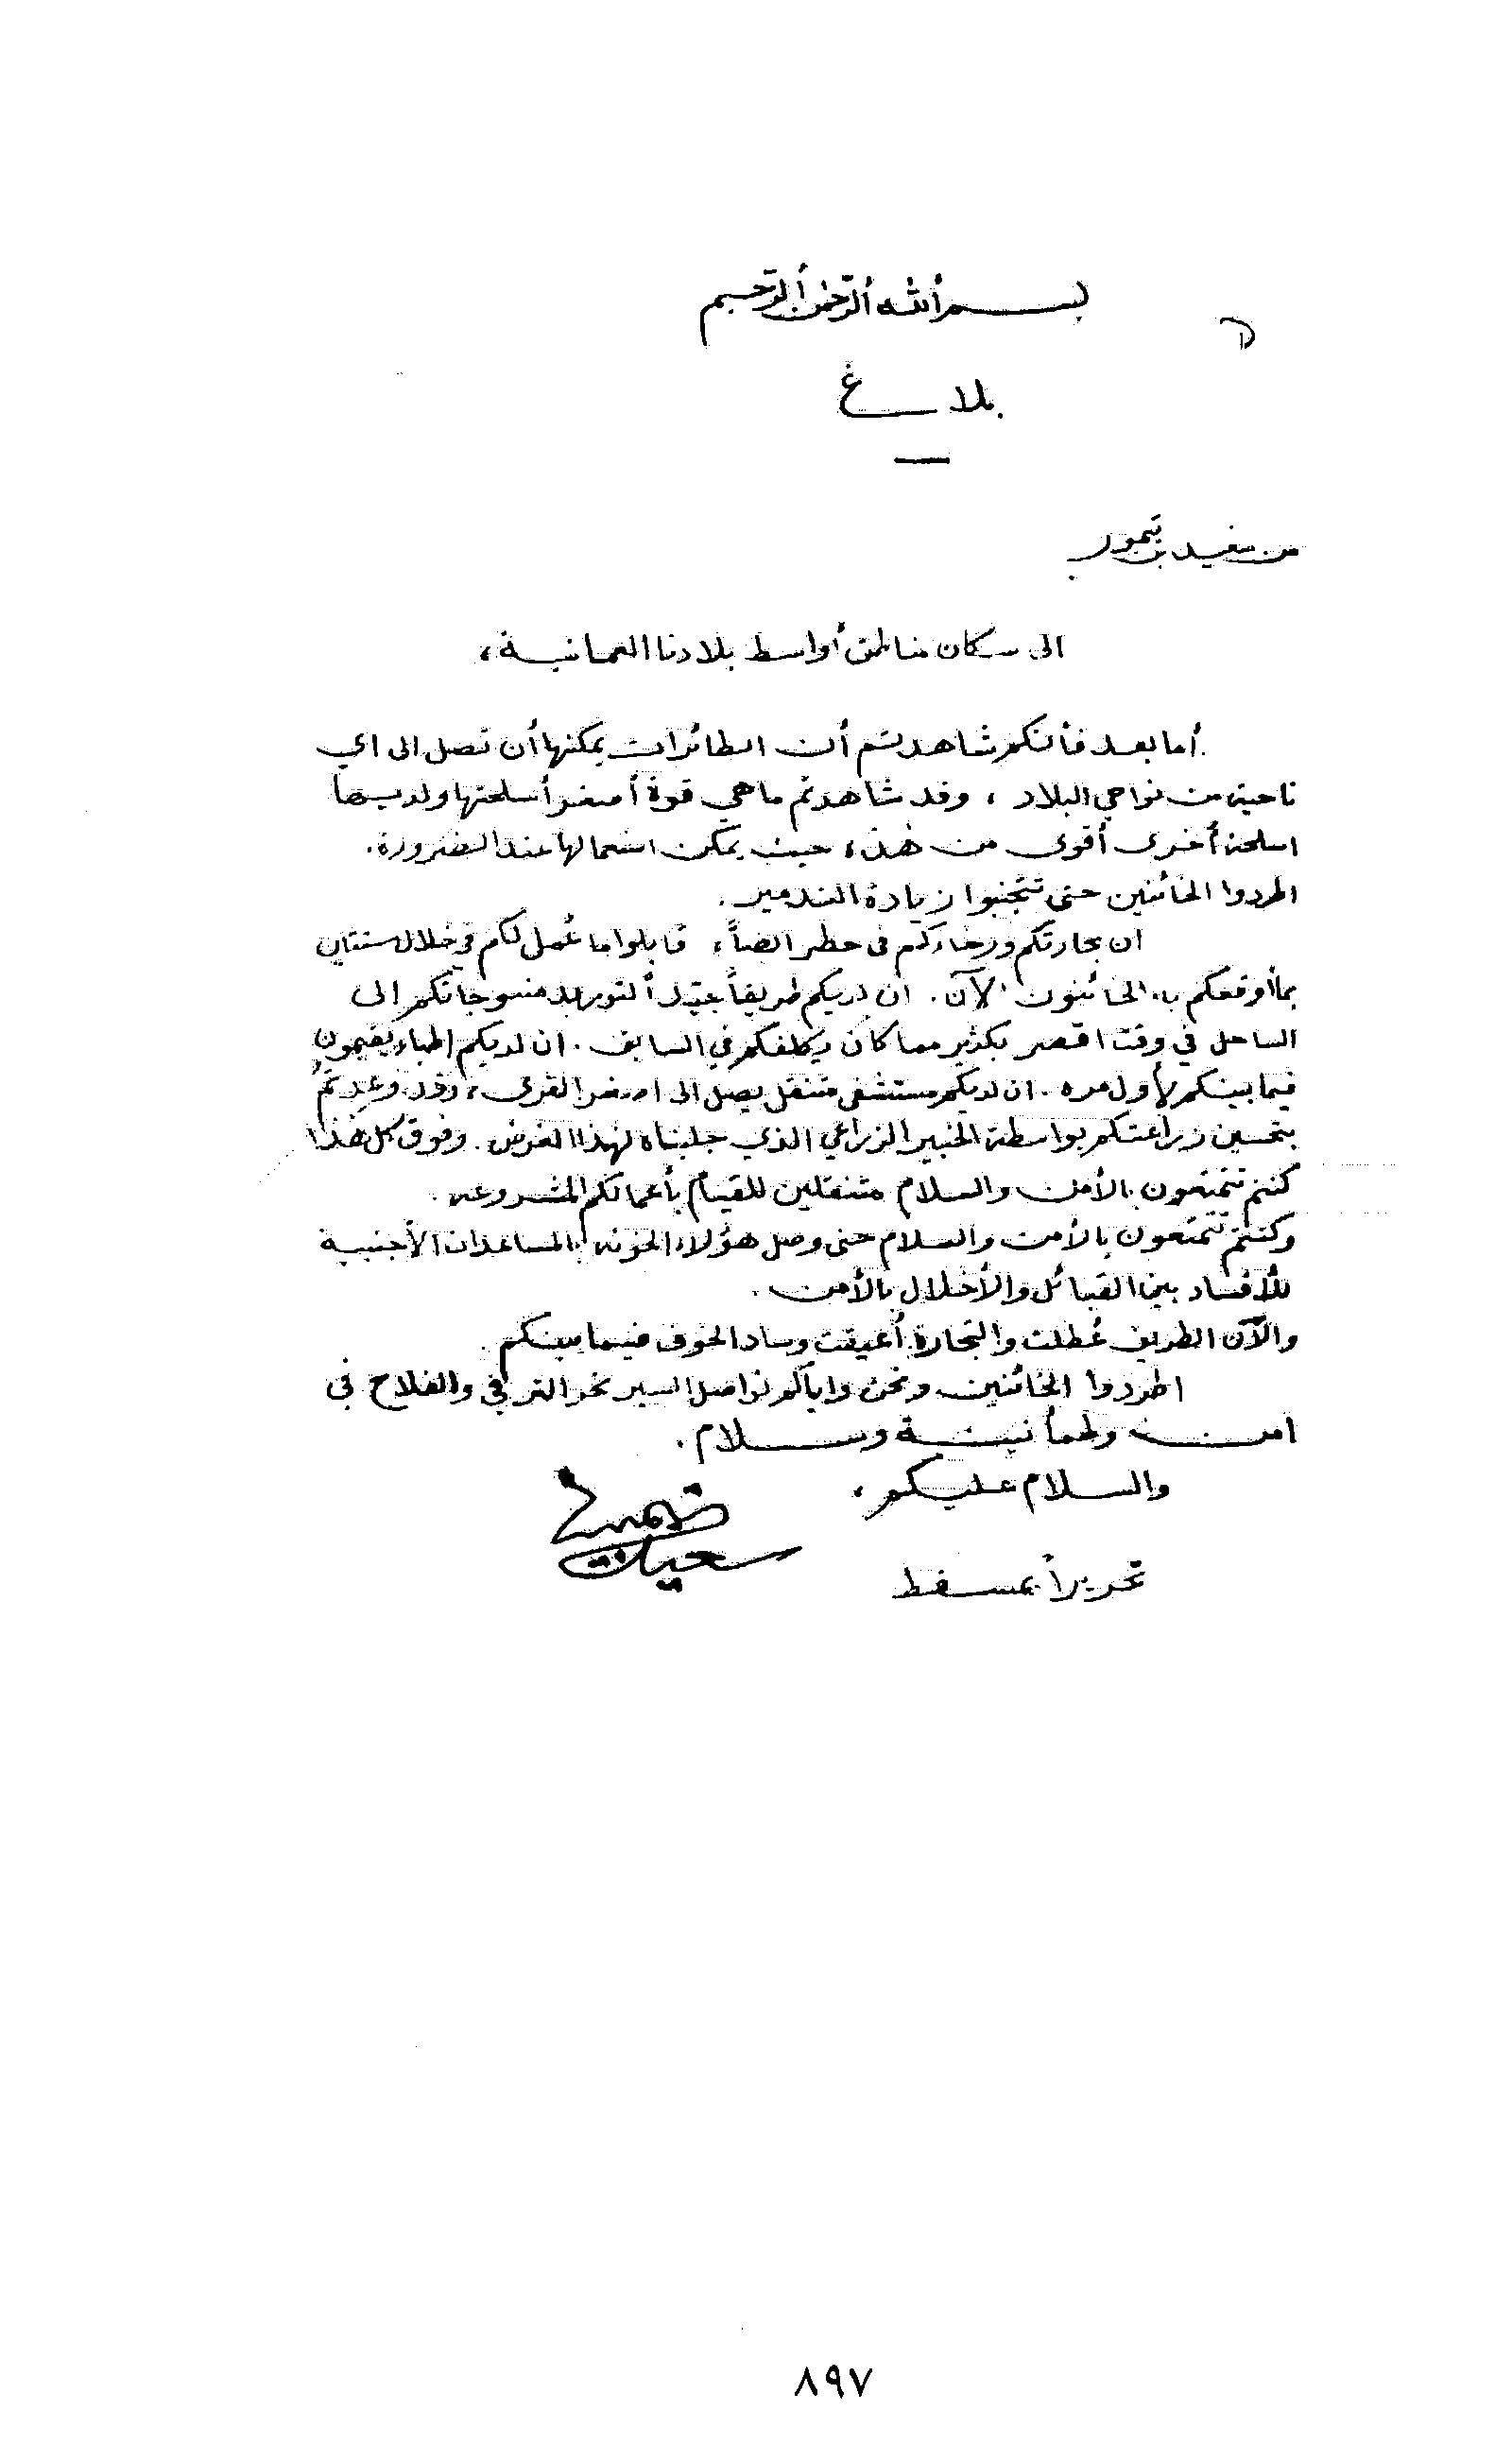 بسم الله الرحمن الرحيم
بلاغ
من سعيد بن تيمور
الى سكان مناطق أواسط بلادنا العمانية،
أما بعد فأنكم شاهدتم أن الطائرات يمكنها أن تصل الى اي
ناحية من نواحي البلاد ، وقد شاهدتم ما هي قوة أصغر أسلحتها ولديها
اسلحة أخرى أقوى من هذه، حيث يمكن استعمالها عند الضرورة.
اطردوا الخائنين حتى تتجنبوا زيادة التدمير.
ان تجارتكم ورخاءكم في خطر ايضاً، قابلوا ما عُمل لكم في خلال سنتان
بما أوقعكم به الخائنون الآن. ان لديكم طريقاً جيداً لتوريد منسوجاتكم الى
الساحل في وقت اقصر بكثير مما كان يكلفكم في السابق. ان لديكم اطباء يقيمون
فيما بينكم لأول مره. ان لديكم مستشفى متنقل يصل الى اصغر القرى، وقد وعدتمُ
بتحسين زراعتكم بواسطة الخبير الزراعي الذي جلبناه لهذا الغرض. وفوق كل هذا
كنتم تتمتعون بالأمن والسلام متنقلين للقيام بأعمالكم المشروعه.
وكنتم تتمتعون بالأمن والسلام حتى وصل هؤلاء الخونه بالمساعدات الأجنبية
للأفساد بين القبائل والأخلال بالأمن.
والآن الطريق عُطلت والتجارة أعيقت وساد الخوف فيما بينكم.
اطردوا الخائنين ونحن واياكم نواصل السير نحو الترقي والفلاح في
امن وطمأنينة وسلام.
والسلام عليكم،
سعيد بن
تحريراً بمسقط
٨٩٧